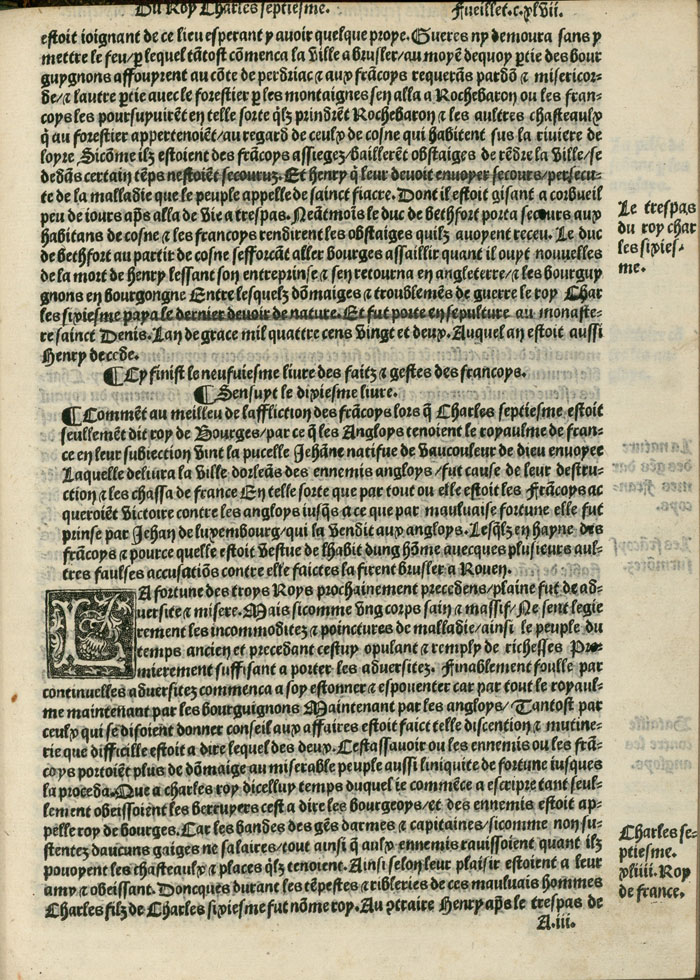 Du Roy Charles septiesme. Fueillet.c.xlvii.
estoit ioignant de ce lieu esperant y avoir quelque proye. Gueres ny demoura sans y
mettre le feu/p lequel tãtost cõmenca la ville a brusler/au moyẽ dequoy ptie des bour
guygnons affouyrent au cõte de perdriac ⁊ aux frãcoys requerãs pardõ ⁊ misericor⸗
de/⁊ lautre ptie avec le forestier p les montaignes sen alla a Rochebaron ou les fran⸗
coys les poursuyuirẽt en telle sorte q̃lz prindrẽt Rochebaron ⁊ les aultres chasteaulx
q̃ au forestier appertenoiẽt/au regard de ceulx de cosne qui habitent sus la riviere de
loyre Sicõme ilz estoient des frãcoys assiegez/baillerẽt obstaiges de rẽdre la ville/se
dedãs certain tẽps nestoiẽt secouruz. Et henry q̃ leur devoit envoyer secours/persecu⸗
te de la malladie que le peuple appelle de sainct fiacre. Dont il estoit gisant a corbueil
peu de iours aps̃ alla de vie a trespas. Neãtmois le duc de bethfort porta secours aux
habitans de cosne ⁊ les francoys rendirent les obstaiges quilz avoyent receu. Le duc
de bethfort au partir de cosne sefforcãt aller bourges assaillir quant il ouyt nouvelles
de la mort de henry lessant son entreprinse ⁊ sen retourna en angleterre/⁊ les bourguy
gnons en bourgongne Entre lesquelz dõmaiges ⁊ troublemẽs de guerre le roy Char
les sixiesme paya le dernier devoir de nature. Et fut porte en sepulture au monaste⸗
re sainct Denis. Lan de grace mil quattre cens vingt et deux. Auquel an estoit aussi
Henry decede.
Le trespas
du roy char
les sixies⸗
me.
¶Cy finist le neufuiesme livre des faitz ⁊ gestes des francoys.
¶Sensuyt le dixiesme livre.
¶Commẽt au meilleu de laffliction des frãcoys lors q̃ Charles septiesme estoit
seullemẽt dit roy de Bourges/par ce q̃ les Angloys tenoient le royaulme de fran⸗
ce en leur subiection vint la pucelle Jehãne natifue de vaucouleur de dieu envoyee
Laquelle delivra la ville dorleãs des ennemis angloys/fut cause de leur destru⸗
ction ⁊ les chassa de france En telle sorte que par tout ou elle estoit les Frãcoys ac
queroiẽt victoire contre les angloys iusq̃s a ce que par mauluaise fortune elle fut
prinse par Jehan de luxembourg/qui la vendit aux angloys. Lesq̃lz en hayne des
frãcoys ⁊ pource quelle estoit vestue de lhabit dung hõme avecques plusieurs aul⸗
tres faulses accusatiõs contre elle faictes la firent brusler a Rouen.
LA fortune des troys Roys prochainement precedens/plaine fut de ad⸗
versite ⁊ misere. Mais sicomme ung corps sain ⁊ massif/Ne sent legie
rement les incommoditez ⁊ poinctures de malladie/ainsi le peuple du
temps ancien et precedant cestuy opulant ⁊ remply de richesses Pre⸗
mierement suffisant a porter les adversitez. Finablement foulle par
continuelles adversitez commenca a soy estonner ⁊ espouenter car par tout le royaul⸗
me maintenant par les bourguignons Maintenant par les angloys/ Tantost par
ceulx qui se disoient donner conseil aux affaires estoit faict telle discention ⁊ mutine⸗
rie que difficille estoit a dire lequel des deux. Cestassavoir ou les ennemis ou les frã⸗
coys portoiẽt plus de dõmaige au miserable peuple aussi liniquite de fortune iusques
la proceda. Que a charles roy dicelluy temps duquel ie commẽce a escripre tant seul⸗
lement obeissoient les berruyers cest a dire les bourgeoys/et des ennemis estoit ap⸗
pelle roy de bourges. Car les bandes des gẽs darmes ⁊ capitaines/sicomme non su⸗
stentez daucuns gaiges ne salaires/tout ainsi q̃ aulx ennemis ravissoient quant ilz
povoyent les chasteaulx ⁊ places q̃lz tenoient. Ainsi selon leur plaisir estoient a leur
amy ⁊ obeissant. Doncques durant les tẽpestes ⁊ ribleries de ces mauluais hommes
Charles filz de Charles sixiesme fut nõme roy. Au ɔtraire Henry aps̃ le trespas de
Charles se⸗
ptiesme.
xliiii. Roy
de france.
A.iii.